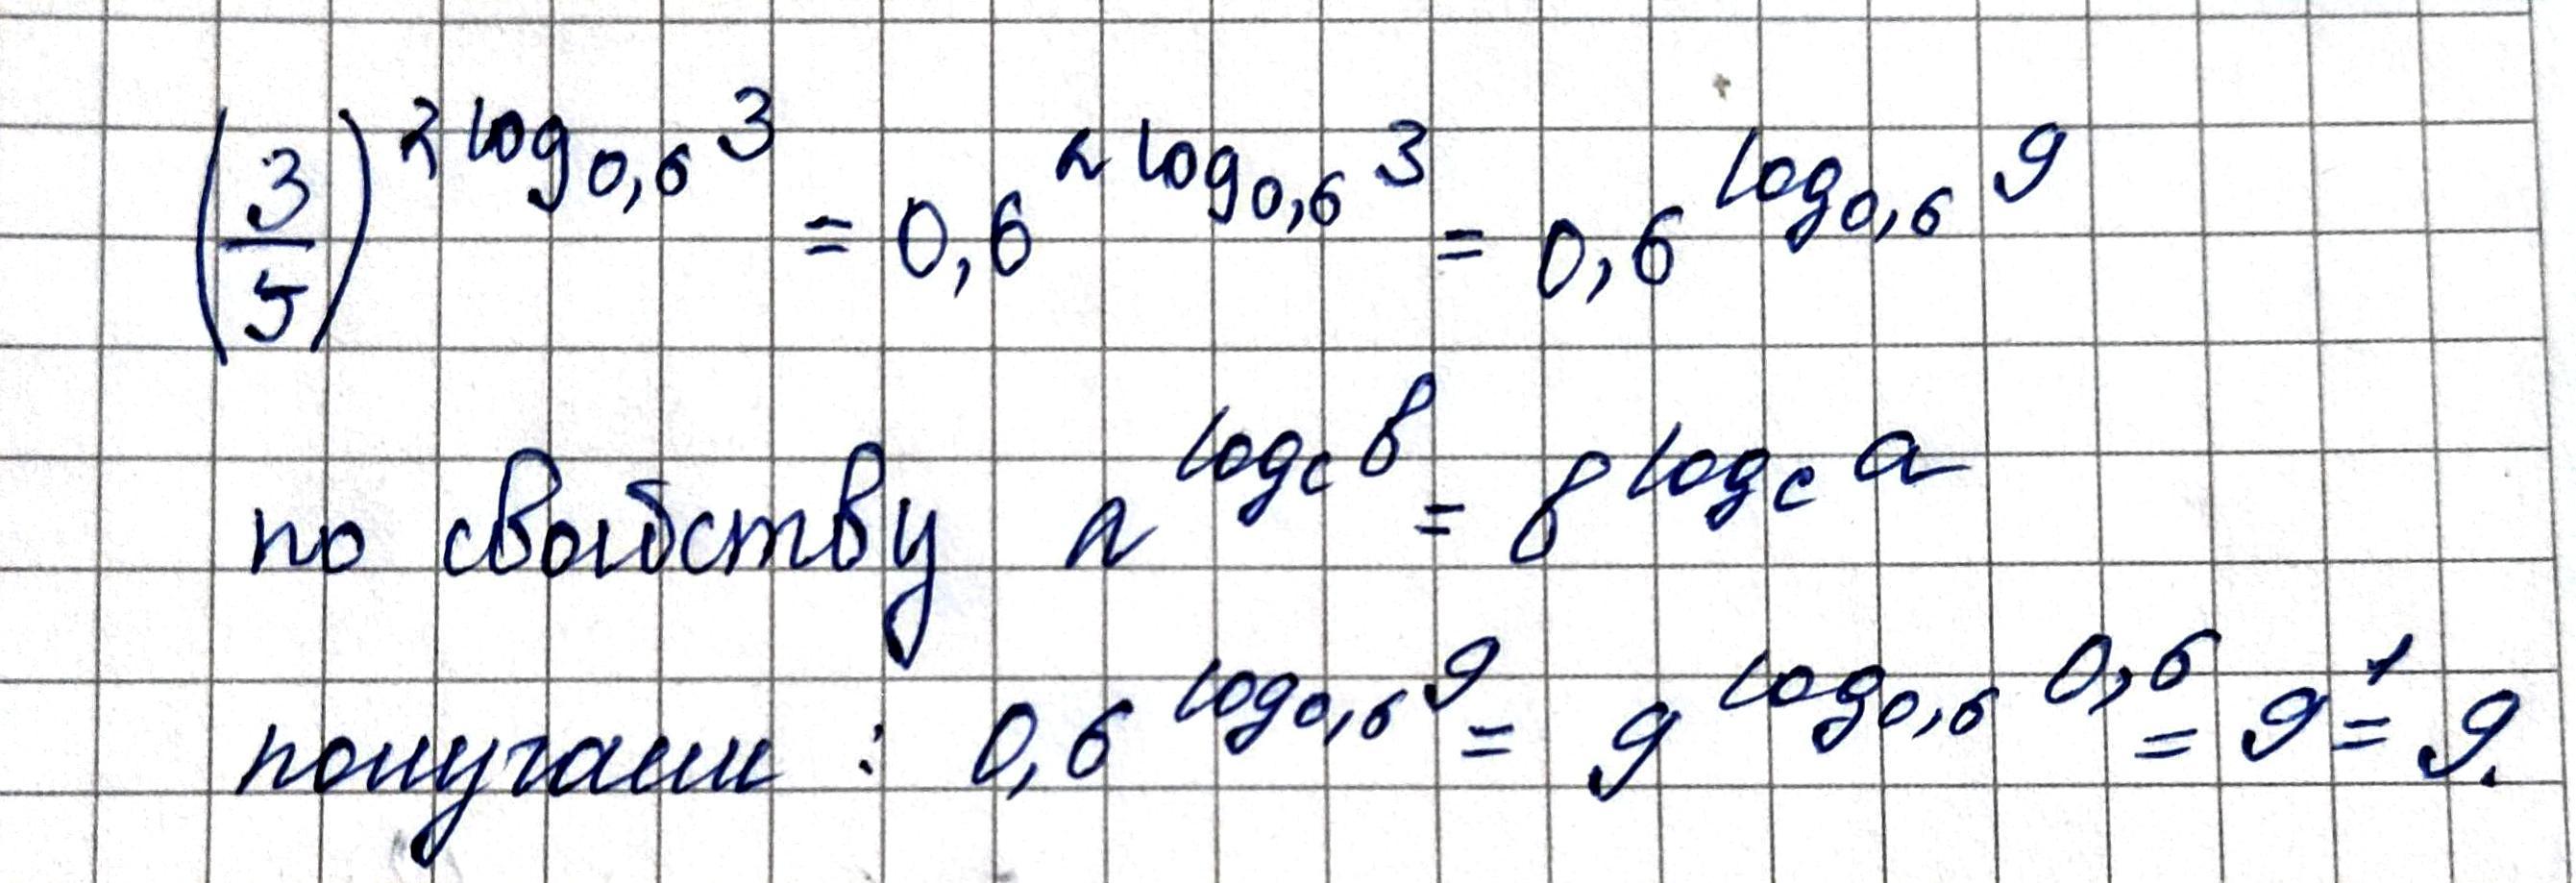 (3/5)^{2 log_{0,6} 3} = 0,6^{2 log_{0,6} 3} = 0,6^{log_{0,6} 9}
по свойству a^{log_c b} = b^{log_c a}
получаем : 0,6^{log_{0,6} 9} = 9^{log_{0,6} 0,6} = 9^1 = 9.